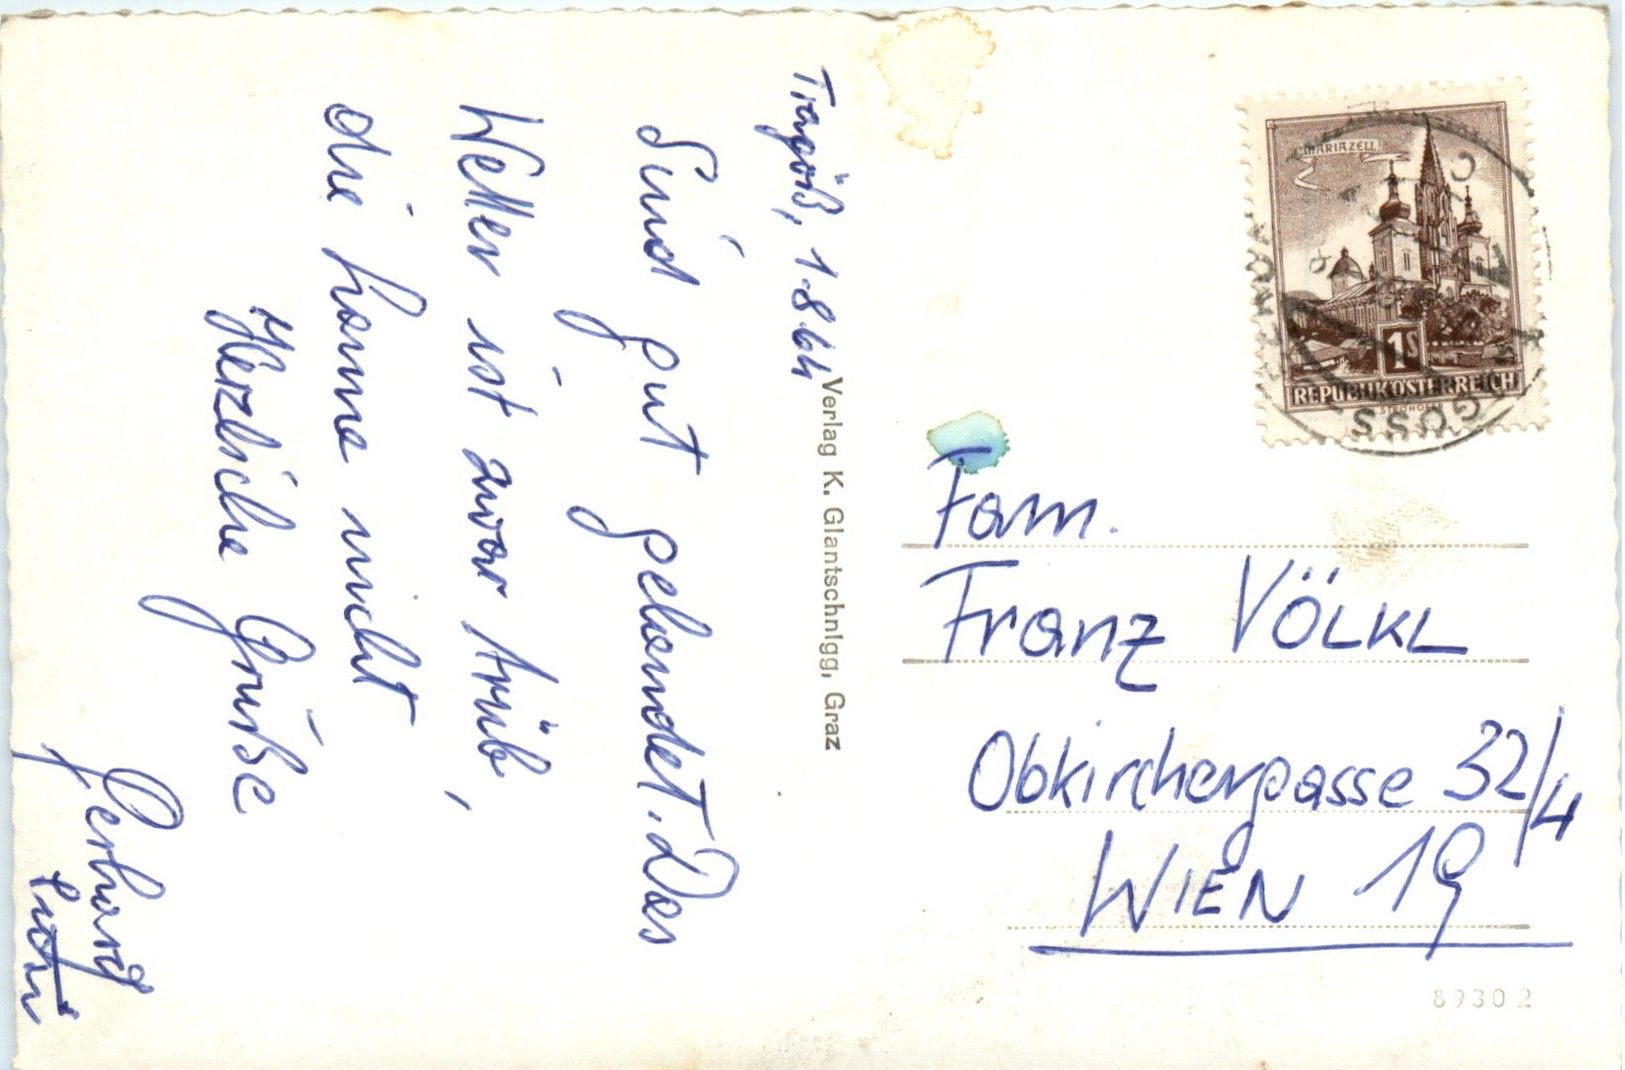 Tragöß, 1.8.64
Sind gut gelandet. Das
Wetter ist zwar trüb,
die Laune nicht
Herzliche Grüße
Gerhard
Verlag K. Glantschnigg, Graz
MARIAZELL
1S
REPUBLIK ÖSTERREICH
Fam.
Franz VÖLKL
Obkirchergasse 32/4
WIEN 19
89302